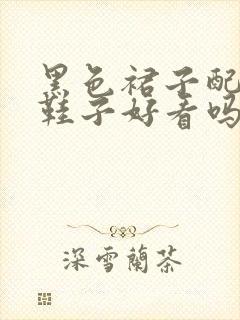 黑色裙子配
鞋子好看吗
深雪蘭茶